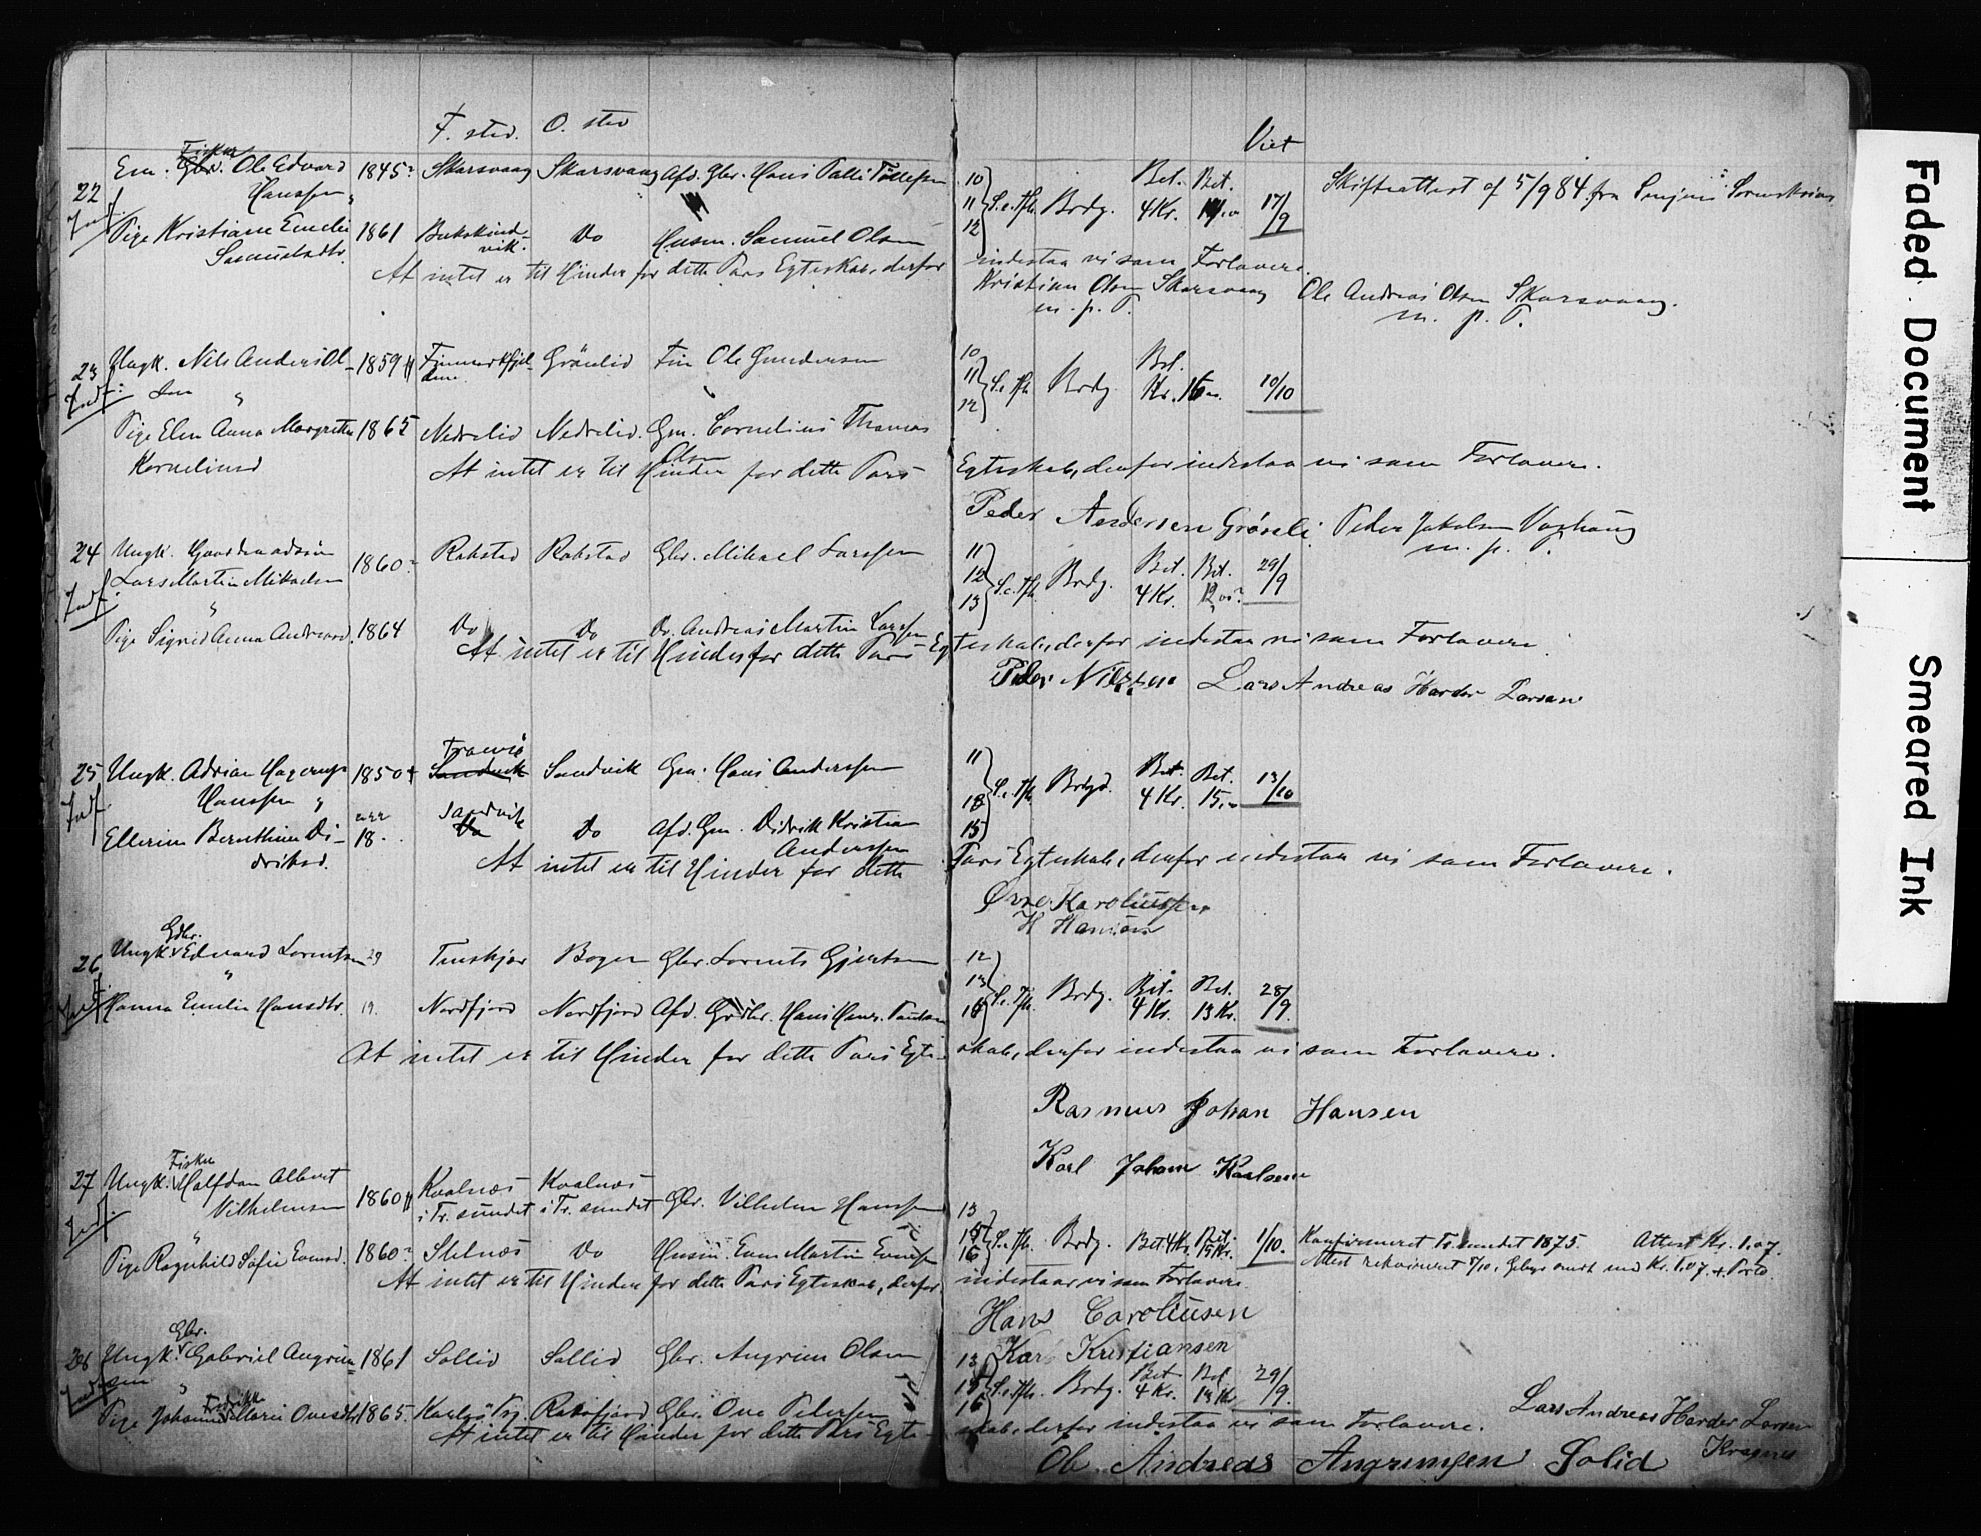 F. sted. O. sted
Viet
22
Em. Gbr. Fisker Ole Edvard
Hanssen
1845
Skarsvaag Skarsvaag Afd. Gbr. Hans Palli Tollefsen
10
11
12
S. e. Tfh. Brdg.
Bet. 4 Kr.
Bet.
17/9
Skifteattest af 5/9 84 fra Senjens Sorenskriver
Indf.
Pige Kristiane Emelie
Samuelsdtr.
1861
Bukskind-
vik.
Do
Husm. Samuel Olsen
At intet er til Hinder for dette Pars Egteskab, derfor
indestaa vi som Forlovere.
Kristian Olsen Skarsvaag Ole Andreas Olsen Skarsvaag.
m. p. P. m. p. P.
23
Indf.
Ungk. Nils Anders Ol-
sen
1859
Finmarkfjel-
dene
Grønlid
Fin Ole Gundersen
10
11
12
S. e. Tfh. Brdg.
Bet.
Kr. 16
10/10
Pige Elen Anna Margrethe
Korneliusd
1865
Nedrelid Nedrelid. Gm. Cornelius Thomas
Olsen
At intet er til Hinder for dette Pars
Egteskab, derfor indestaa vi som Forlovere.
Peder Andersen Grønli Peder Jakobsen
m. p. P.
24
Indf.
Ungk. Gaardmadsøn
Lars Martin Mikaelsen
1860
Rakstad Rakstad Gbr. Mikael Larssen
11
12
13
S. e. Tfh. Brdg.
Bet. 4 Kr.
Bet. 12
29/9
Pige Sigrid Anna Andreasd. 1864
Do Do Do. Andreas Martin Larssen
At intet er til Hinder for dette Pars Egteskab, derfor indestaa vi som Forlovere.
Peder Nilssen Lars Andreas Harder Larsen
25
Indf.
Ungk. Adrian Hagerup
Hanssen
1850
Tranvi
Sandvik Sandvik Gm. Hans Anderssen
11
13
15
S. e. Tfh. Brdg.
Bet. 4 Kr.
Bet. 15
13/10
Ellerine Bernthine Di-
driksd.
18
Sandvik
Do
Do
Afd. Gm. Didrik Kristian
Anderssen
At intet er til Hinder for dette
Pars Egteskab, derfor indestaa vi som Forlovere.
Karoliussen
H Hansen
26
Indf.
Ungk. Gbr. Edvard Lorentsen 29
Tenskjær Bogen Gbr. Lorents Gjertsen
12
13
S. e. Tfh. Brdg.
Bet. 4 Kr.
Bet. 13 Kr.
28/9.
Hanna Emelie Hansdtr. 19.
Nordfjord Nordfjord Afd. Gbr. Hans Hans. Paulsen
At intet er til Hinder for dette Pars Egte-
skab, derfor indestaa vi som Forlovere.
Rasmus Johan Hansen
Karl Johan Karlsen
27
Indf.
Ungk. Fisker Halfdan Albert
Vilhelmsen
1860
Kvalnæs
i Tr. sundet
Kvalnæs
i Tr. sundet
Gbr. Vilhelm Hanssen
13
15
16
S. e. Tfh. Brdg. Bet. 4 Kr. Bet. 15 Kr.
1/10.
Konfirmeret Tr.sundet 1875. Attest Kr. 1,07.
Attest rekvireret 5/10. Gebyr sendt med Kr. 1,07 + Porto.
Pige Ragnhild Sofie Evensd. 1860
Stelnæs Do Husm. Even Martin Evensen
At intet er til Hinder for dette Pars Egteskab, derfor
indestaar vi som Forlovere
Hans Caroliusen
Karl Kristiansen
28
Indf.
Ungk. Gbr. Gabriel Angrim-
sen
1861
Sollid Sollid Gbr. Angrim Olsen
13
15
16
S. e. Tfh. Brdg.
Bet. 4 Kr.
Bet. 14 Kr.
29/9.
Pige Johanna Fredrikke Marie Ovesdtr. 1865.
Karlsø Pg. Rakfjord Gbr. Ove Pedersen
At intet er til Hinder for dette Pars Egte-
skab, derfor indestaa vi som Forlovere.
Lars Andreas Harder Larsen
Kragnes
Ole Andreas Angrimsen Solid
Faded Document
Smeared Ink